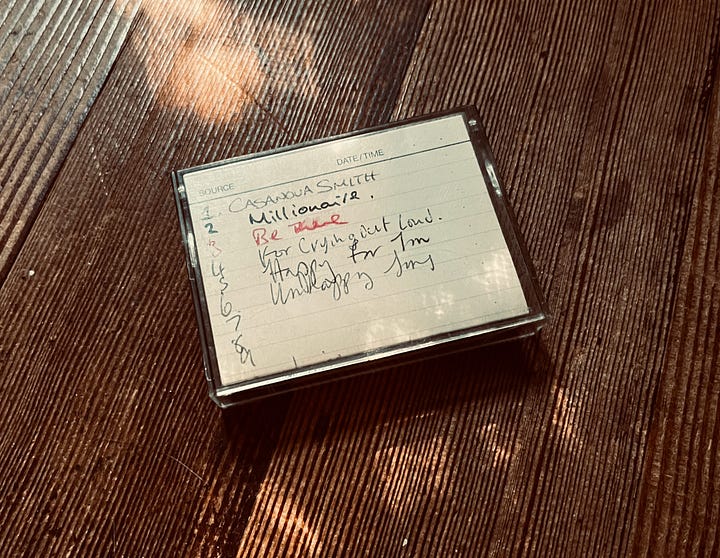 SOURCE DATE/TIME
1. CASANOVA SMITH
2 Millionaire.
3 Be There
4 For Crying Out Loud.
5 Happy For I'm
6 Unhappy
7
8
9